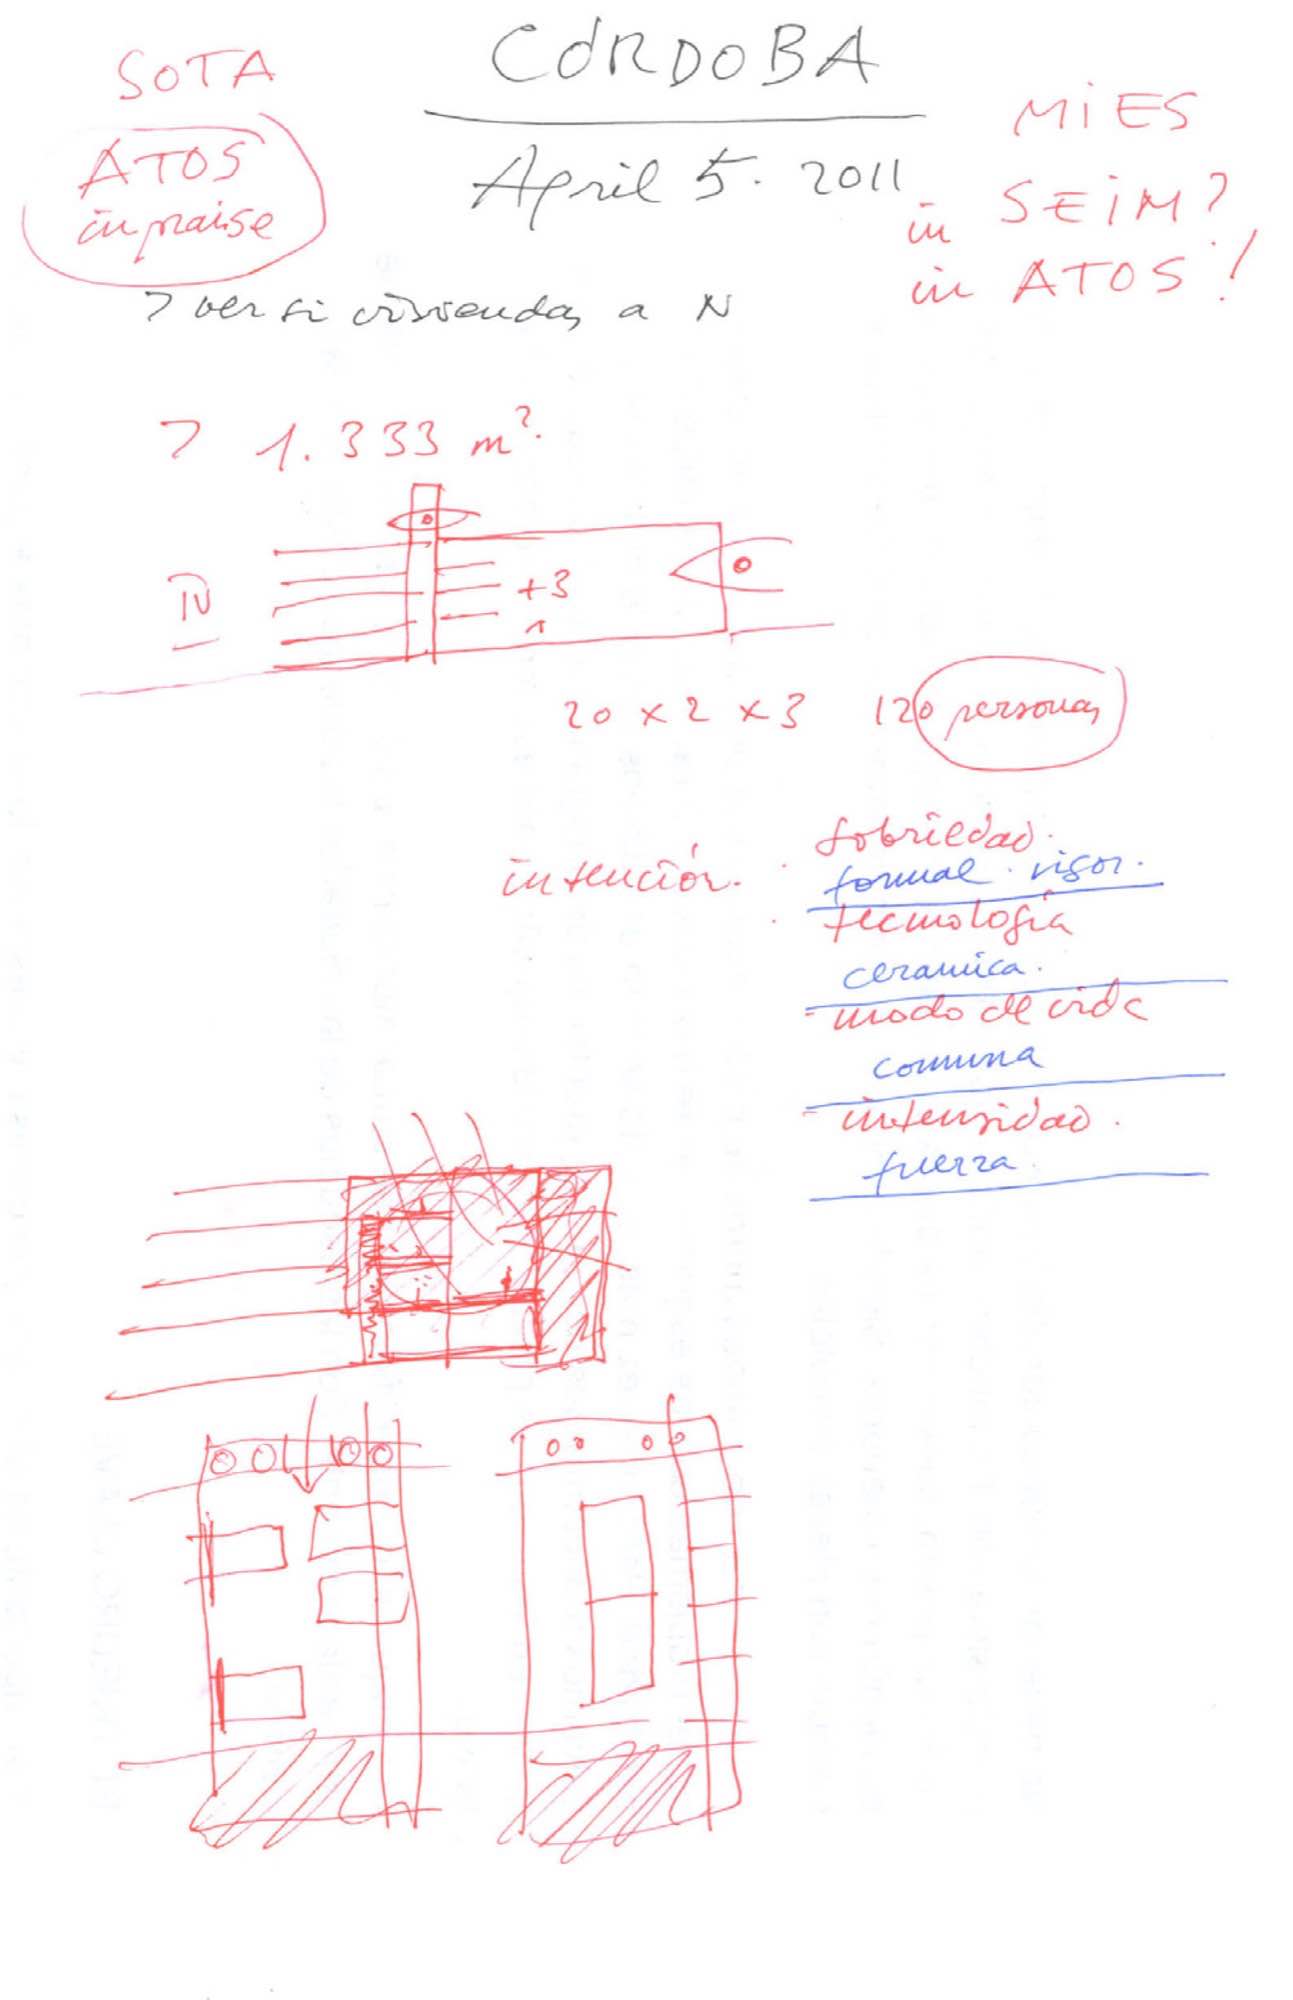 CÓRDOBA
April 5. 2011
SOTA
ATOS
in praise
MIES
in SEIM?
in ATOS!
> ver si viviendas a N
> 1.333 m².
IV
+3
1
20 x 2 x 3 120 personas
intención.
· sobriedad.
formal. rigor.
· tecnología
ceramica.
- modo de vida
comuna
- intensidad.
fuerza